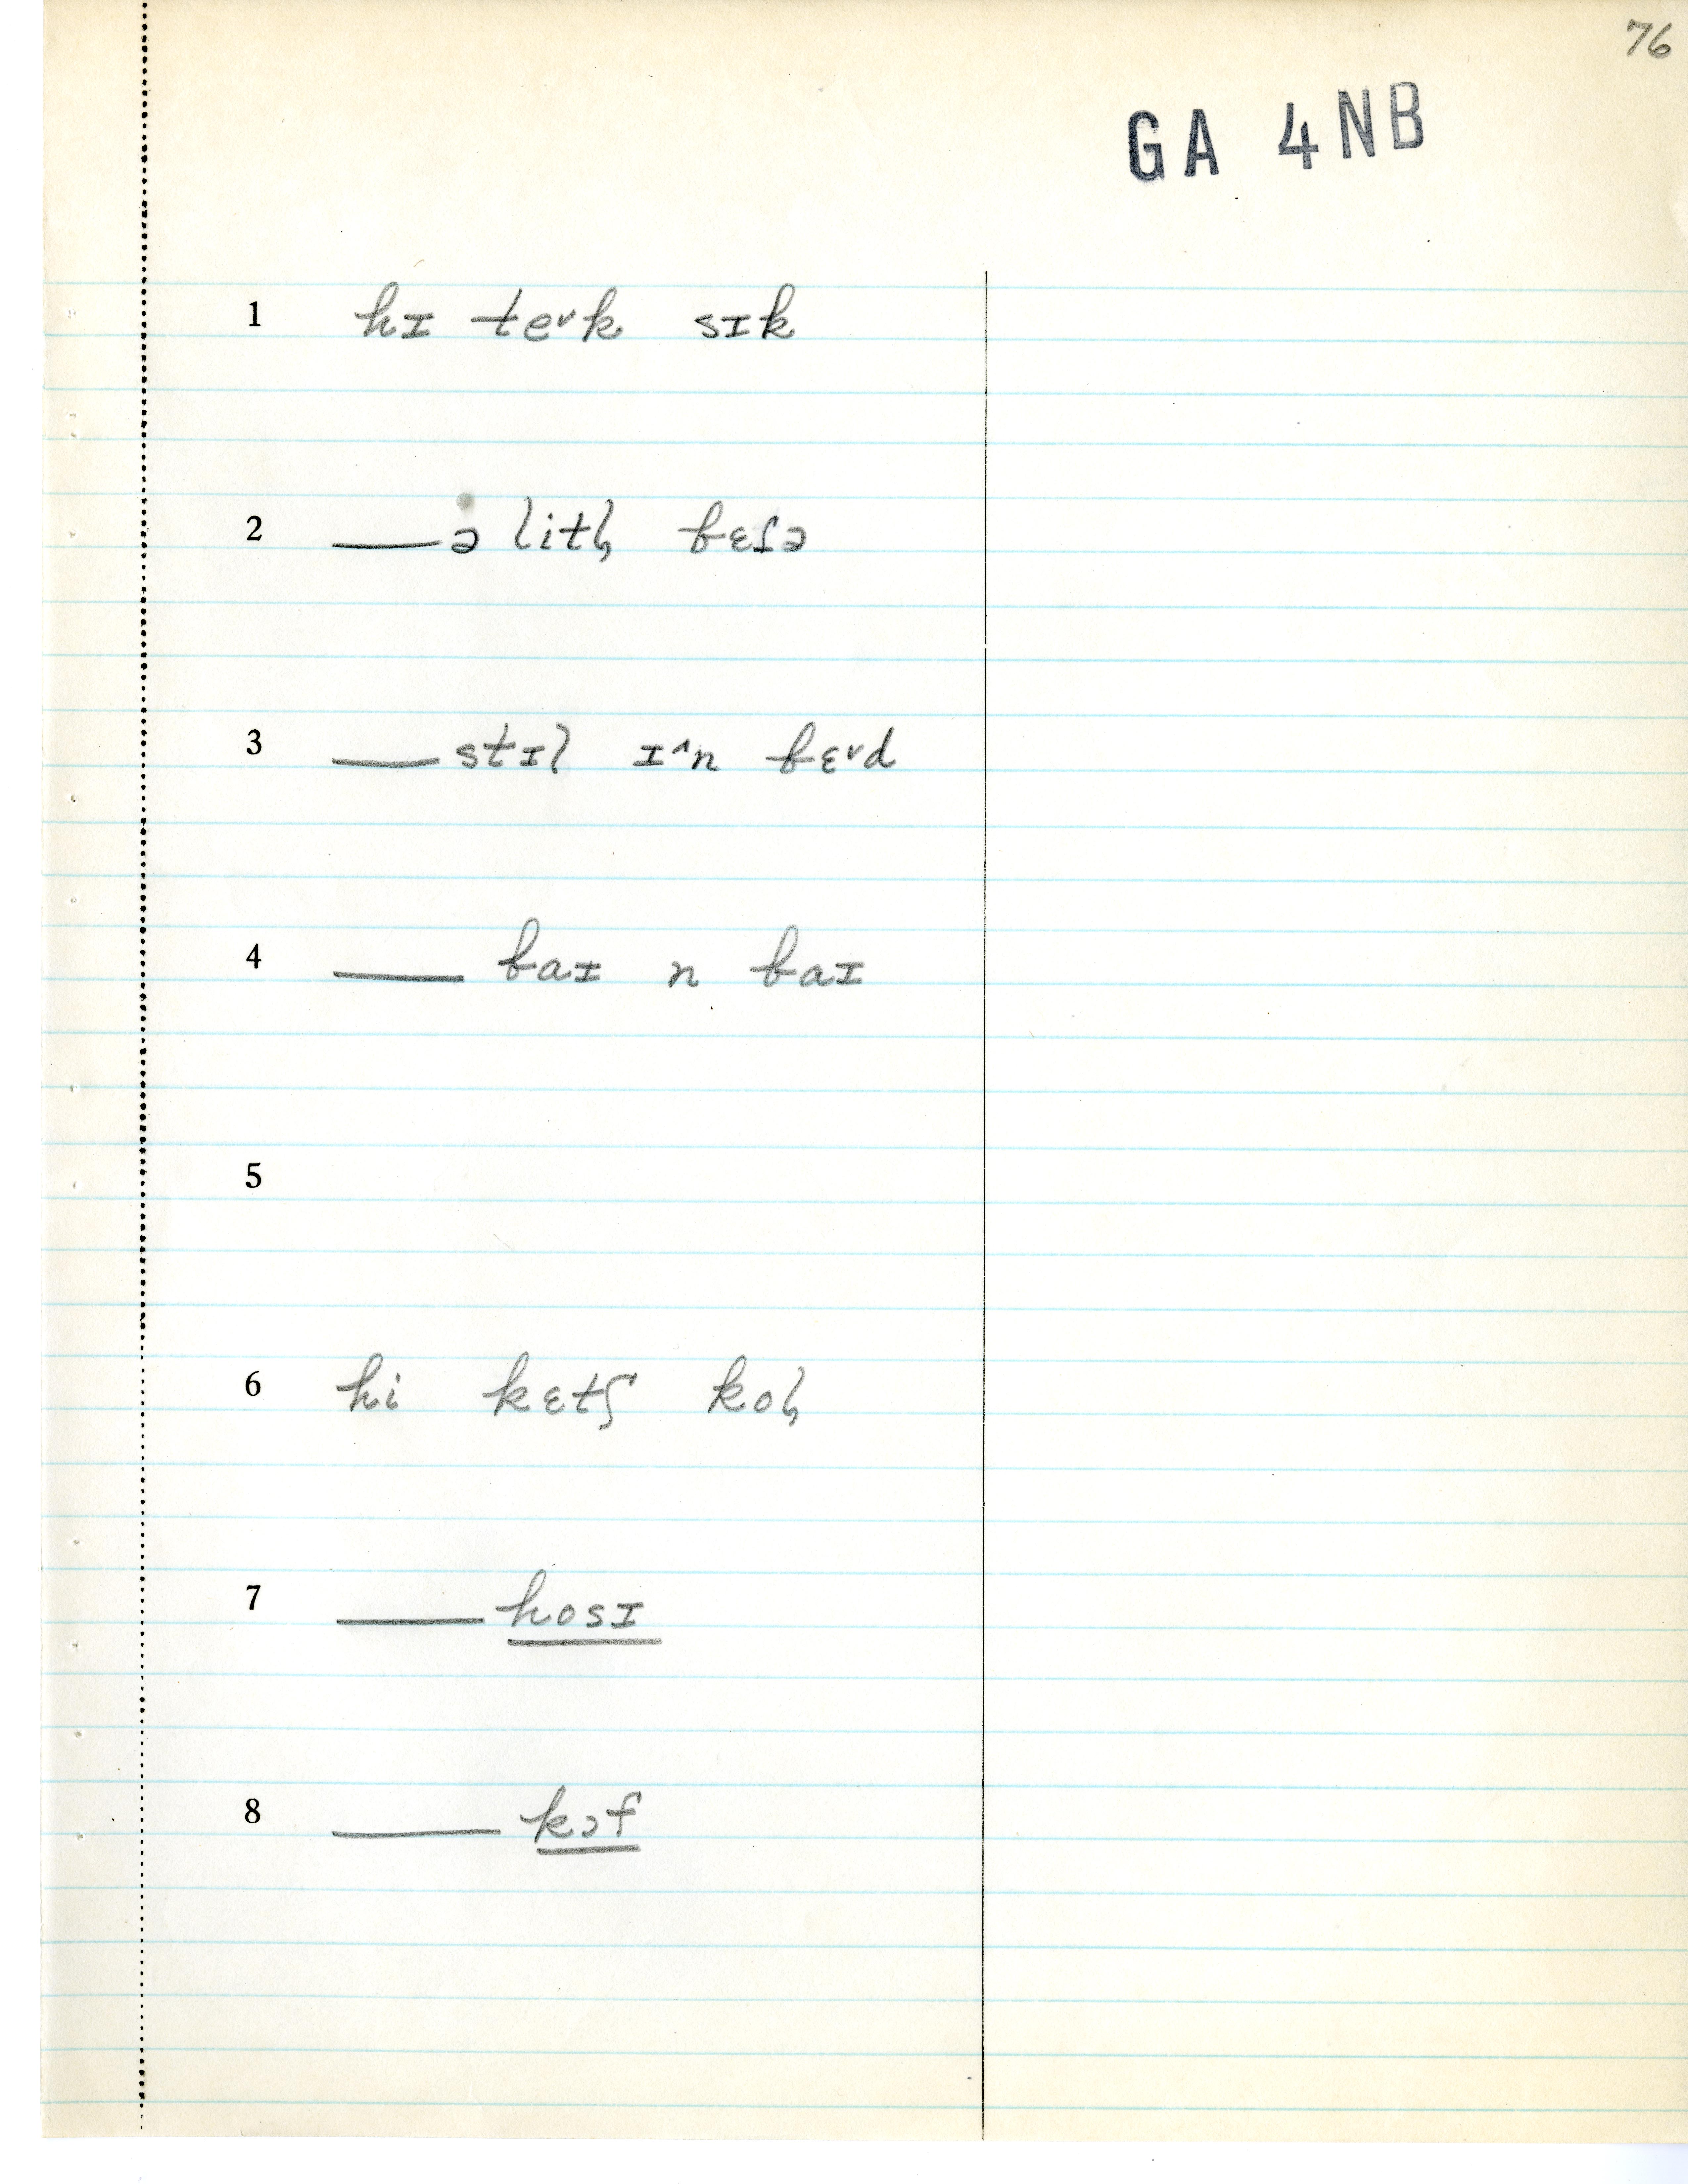 76
GA 4NB
1 hɪ te˅k sɪk
2 ___ə ɫitɫ̩ bɛɾə
3 ___stɪɫ ɪ˄n bɛ˅d
4 ___ baɪ n baɪ
5
6 hi kɛtʃ koɫ̩
7 ___hosɪ
8 ___ kɔf